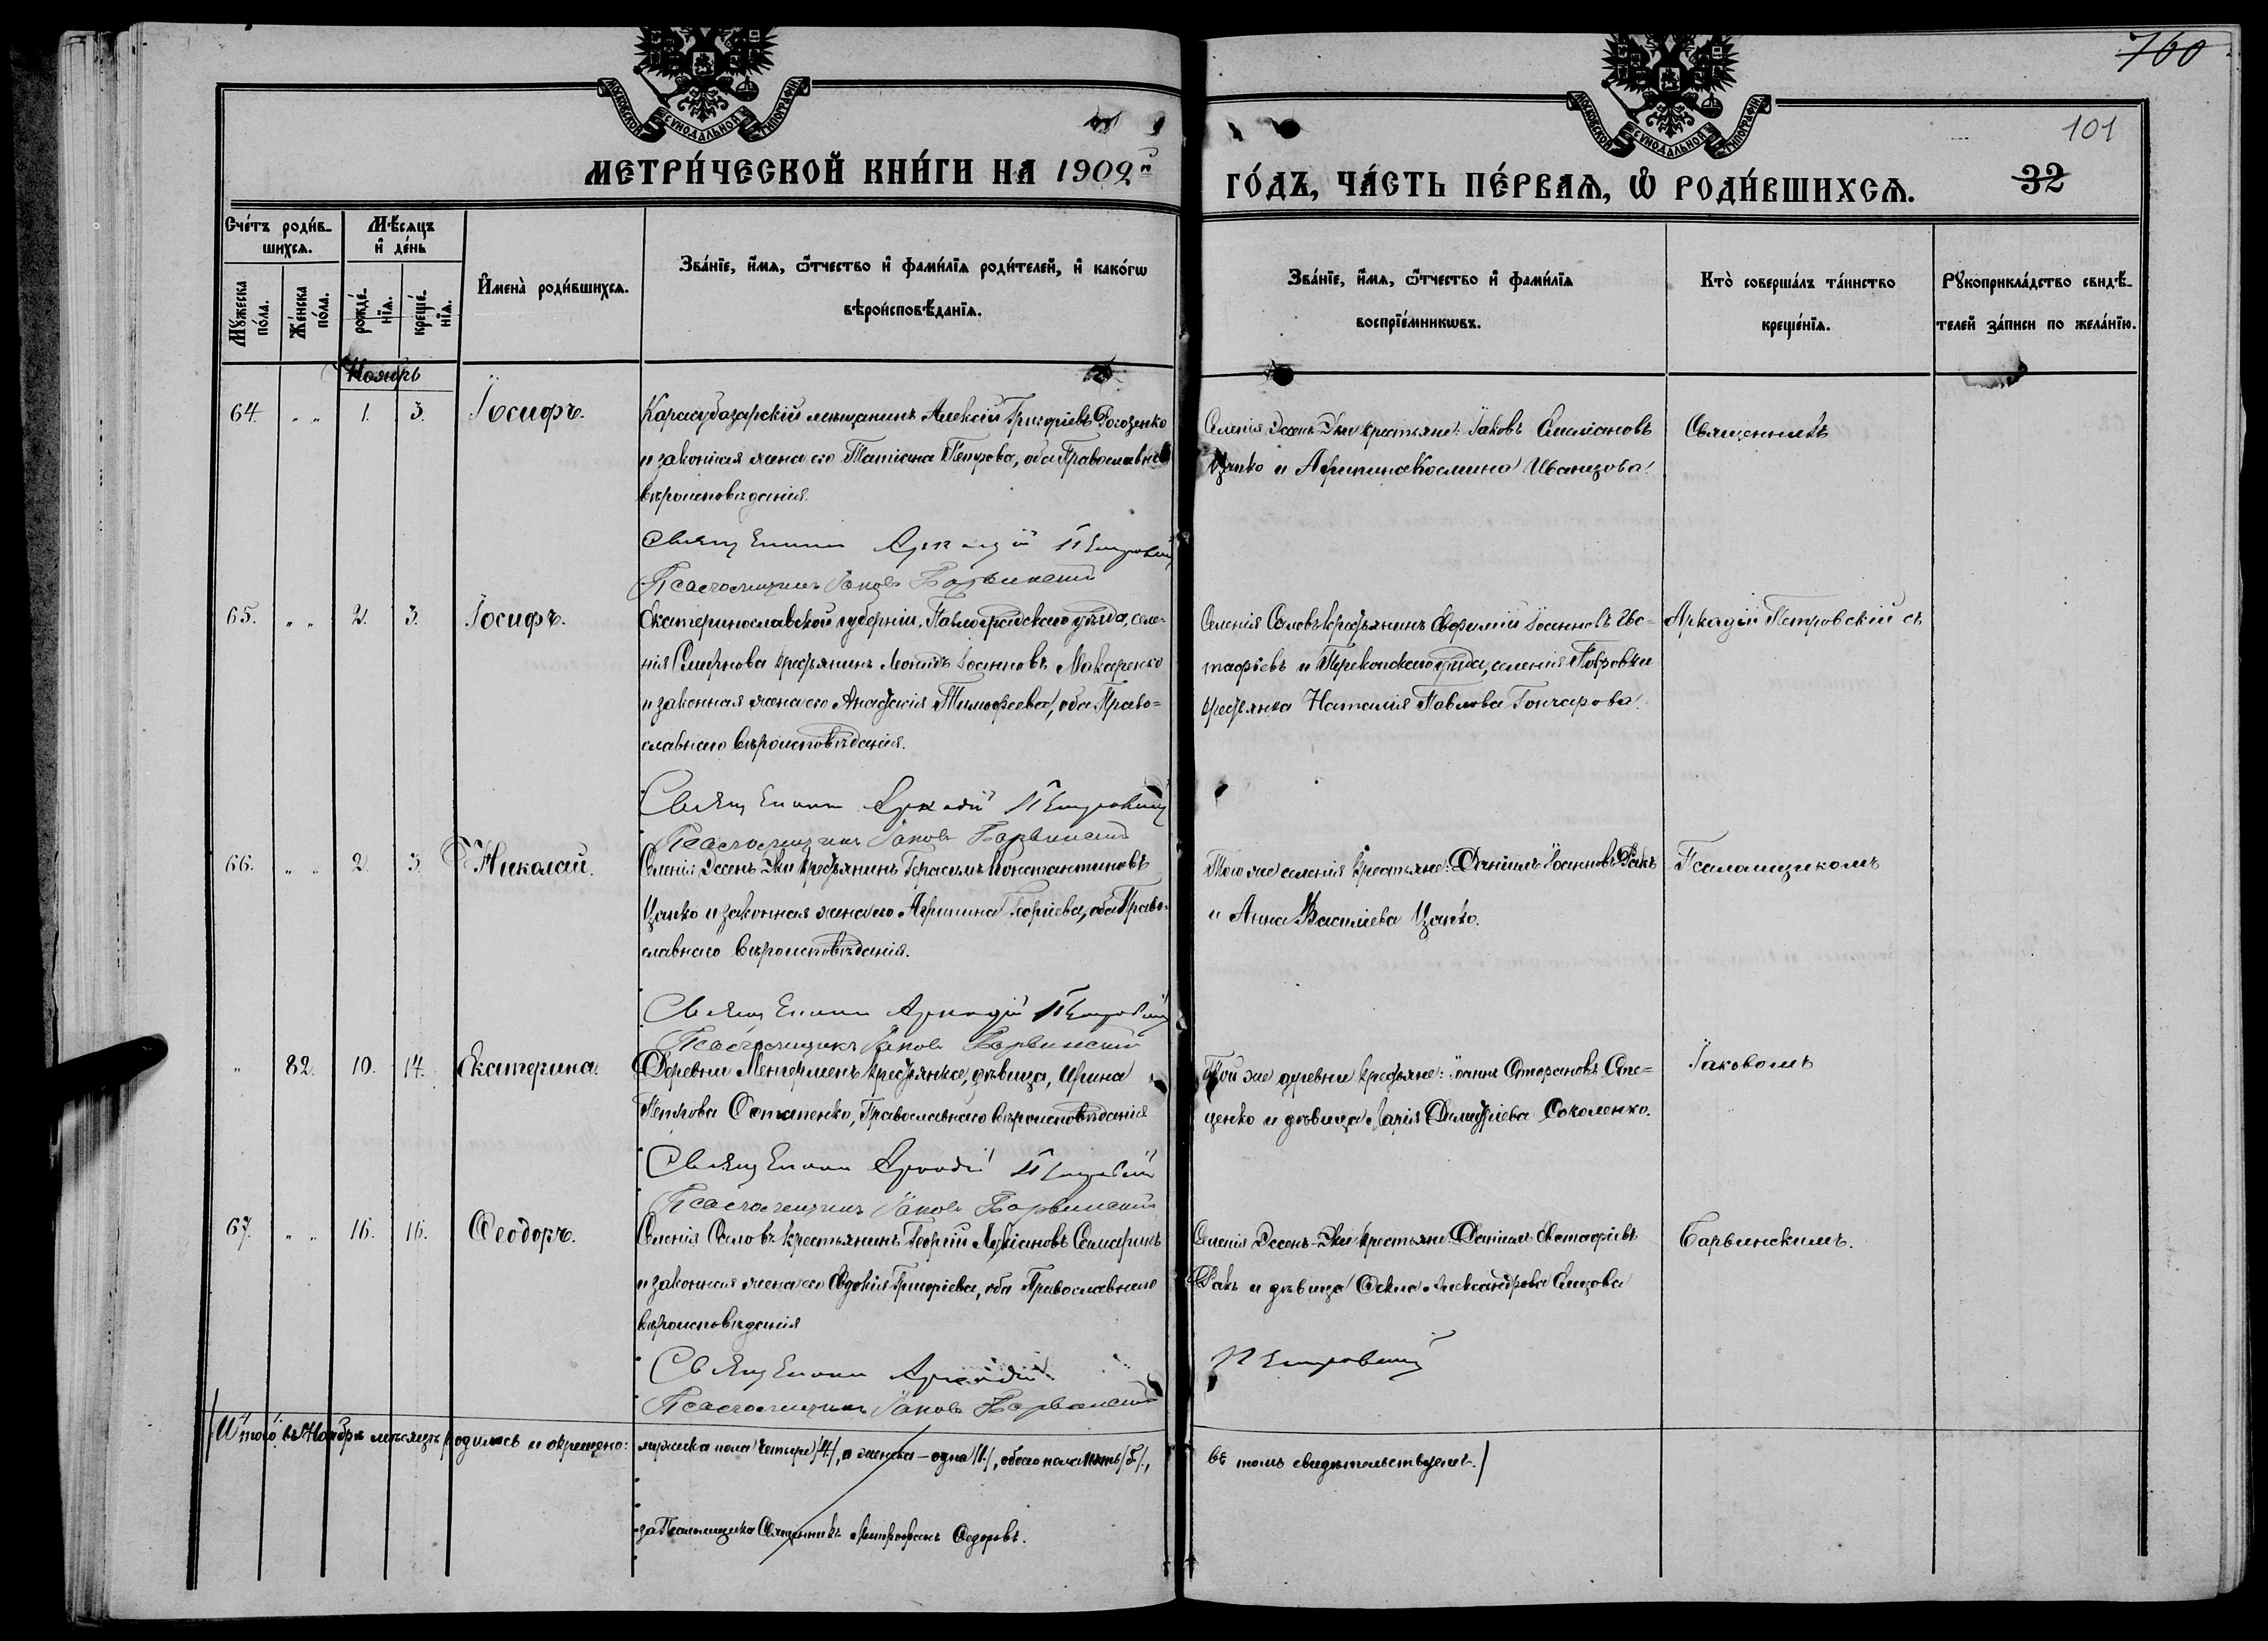 760
101
32
МОСКОВСКОЙ СѴНОДАЛЬНОЙ ТИПОГРАФІИ
МОСКОВСКОЙ СѴНОДАЛЬНОЙ ТИПОГРАФІИ
МЕТРИ́ЧЕСКОЙ КНИ́ГИ НА 1902й
ГО́ДЪ, ЧА́СТЬ ПЕ́РВАѦ, Ѡ҆ РОДИ́ВШИХСѦ.
Сче́тъ роди́в-
шихсѧ.
Мѣ́сѧцъ
и҆ де́нь
Мꙋ́жеска
по́ла.
Же́нска
по́ла.
рожде́-
нїѧ.
креще́-
нїѧ.
И҆мена̀ роди́вшихсѧ.
Зва́нїе, и҆́мѧ, ѻ҆́тчество и҆ фами́лїѧ роди́телей, и҆ како́гѡ
вѣроисповѣ́данїѧ.
Зва́нїе, и҆́мѧ, ѻ҆́тчество и҆ фами́лїѧ
воспрїе́мникѡвъ.
Кто̀ соверша́лъ та́инство
креще́нїѧ.
Рꙋкоприкла́дство свидѣ́-
телей за́писи по жела́нїю.
Ноябрь
64. " " 1. 3. Іосифъ.
Карасубазарскій мѣщанинъ Алексій Григоріевъ Рогозенко
и законная жена его Татіана Петрова, оба Православнаго
вѣроисповѣданія.
Священникъ Аркадій Петровскій
Псаломщикъ Іаковъ Барвинскій
Селенія Эссенъ-Эки крестьяне: Іаковъ
Цапко и Агрипина Космина Иванцова.
Священникъ
65. " " 2. 3. Іосифъ.
Екатеринославской губерніи, Павлоградскаго уѣзда, селе-
нія крестьянинъ Іоанновъ Макаренко
и законная жена его Анастасія Тимофеева, оба Право-
славнаго вѣроисповѣданія.
Священникъ Аркадій Петровскій
Псаломщикъ Іаковъ Барвинскій
Селенія крестьянинъ Іоанновъ Ев-
тафіевъ и Перекопскаго уѣзда, селенія Петровки
крестьянка Наталія Павлова Гончарова.
Аркадій Петровскій съ
66. " " 2. 3. Николай.
Селенія Эссенъ-Эки крестьянинъ Герасимъ Константиновъ
Цапко и законная жена его Агрипина Георгіева, оба Право-
славнаго вѣроисповѣданія.
Священникъ Аркадій Петровскій
Псаломщикъ Іаковъ Барвинскій
Того же селенія крестьяне: Даніилъ Іоанновъ Ракъ
и Анна Василіева Цапко.
Псаломщикомъ
" 82. 10. 14. Екатерина.
Деревни крестьянка, дѣвица, Ирина
Петрова Остапенко, Православнаго вѣроисповѣданія
Священникъ Аркадій Петровскій
Псаломщикъ Іаковъ Барвинскій
Той же деревни крестьяне: Іоаннъ Сте-
ценко и дѣвица Марія Димитріева Соколенко.
Іаковомъ
67. " " 16. 16. Ѳеодоръ.
Селенія крестьянинъ Георгій Лукіановъ Самаринъ
и законная жена его Евдокія Григоріева, оба Православнаго
вѣроисповѣданія
Священникъ Аркадій
Петровскій
Псаломщикъ Іаковъ Барвинскій
Селенія Эссенъ-Эки крестьяне: Даніилъ Евстафіевъ
Ракъ и дѣвица Ѳекла Александрова
Барвинскимъ.
Итого въ Ноябрѣ мѣсяцѣ родилось и окрещено: мужеска пола четыре /4/, а женска — одна /1/, обоего пола пять /5/, въ томъ свидѣтельствуемъ./
за Псаломщика Священникъ Митрофанъ Ѳедоровъ.